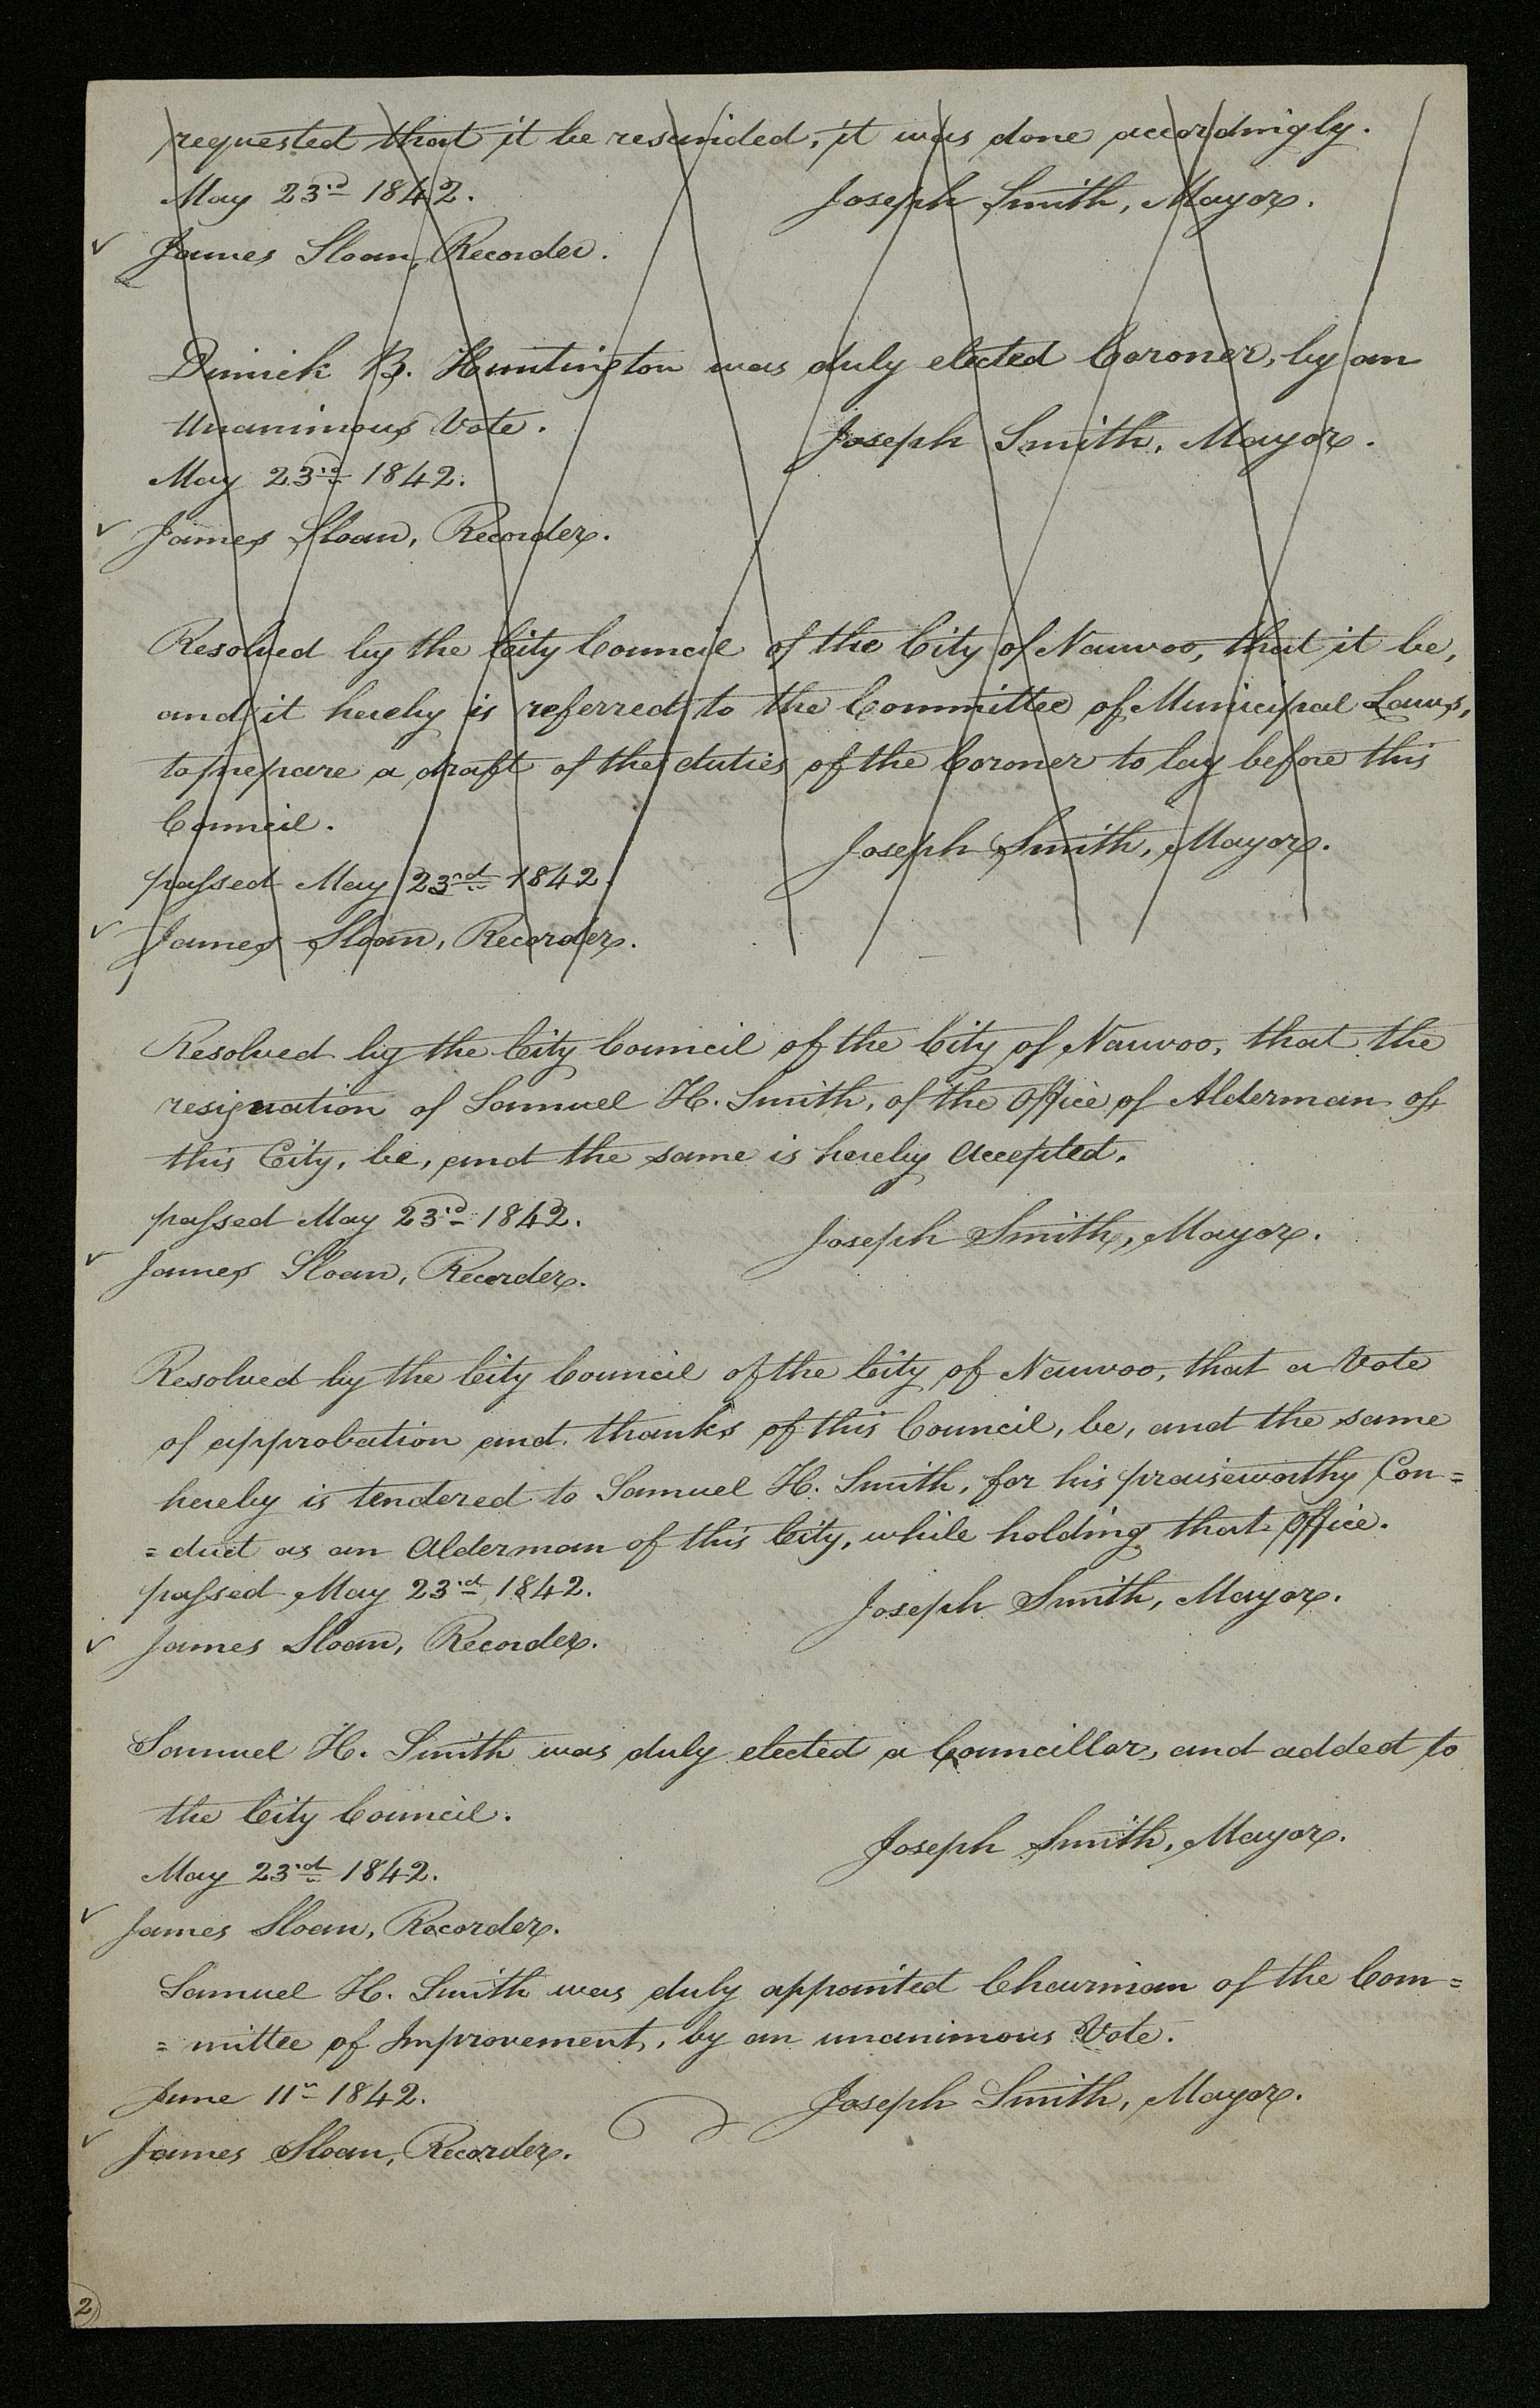 requested that it be rescinded, it was done accordingly.
May 23rd 1842.
Joseph Smith, Mayor.
✓ James Sloan, Recorder.
Dimick B. Huntington was duly elected Coroner, by an
Unanimous Vote.
Joseph Smith, Mayor.
May 23rd 1842.
✓ James Sloan, Recorder.
Resolved by the City Council of the City of Nauvoo, that it be,
and it hereby is referred to the Committee of Municipal Laws,
to prepare a draft of the duties of the Coroner to lay before this
Council.
Joseph Smith, Mayor.
passed May 23rd 1842.
✓ James Sloan, Recorder.
Resolved by the City Council of the City of Nauvoo, that the
resignation of Samuel H. Smith, of the Office of Alderman of
this City, be, and the same is hereby accepted.
passed May 23rd 1842.
Joseph Smith, Mayor.
✓ James Sloan, Recorder.
Resolved by the City Council of the City of Nauvoo, that a Vote
of approbation and thanks of this Council, be, and the same
hereby is tendered to Samuel H. Smith, for his praiseworthy Con=
=duct as an Alderman of this City, while holding that Office.
passed May 23rd 1842.
Joseph Smith, Mayor.
✓ James Sloan, Recorder.
Samuel H. Smith was duly elected a Councillor, and added to
the City Council.
Joseph Smith, Mayor.
May 23rd 1842.
✓ James Sloan, Recorder.
Samuel H. Smith was duly appointed Chairman of the Com=
=mittee of Improvement, by an unanimous Vote.
June 11th 1842.
Joseph Smith, Mayor.
✓ James Sloan, Recorder.
2